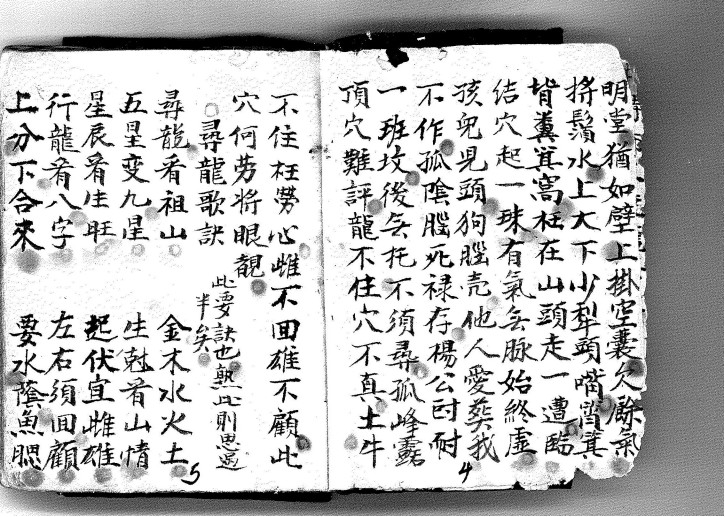 明堂猶如壁上掛空囊欠餘氣
將鬚水上大下小犁頭嘴
糞箕窩枉在山頭走一遭臨
結穴起一珠有氣無脉始終虛
孩兒見頭狗腦壳他人愛葬我
不作孤陰腦死禄存楊公
一班坟後無托不須尋孤峰露
頂穴難評龍不住穴不真土牛
不住枉勞心雌不回雄不顧此
穴何劳将眼覩
尋龍歌訣
此要訣也熟此則思過
半矣
尋龍看祖山 金木水火土
五星变九星 生尅看山情
星辰看生旺 起伏宜雌雄
行龍看八字 左右須回顧
上分下合來 要水蔭魚腮
4
5